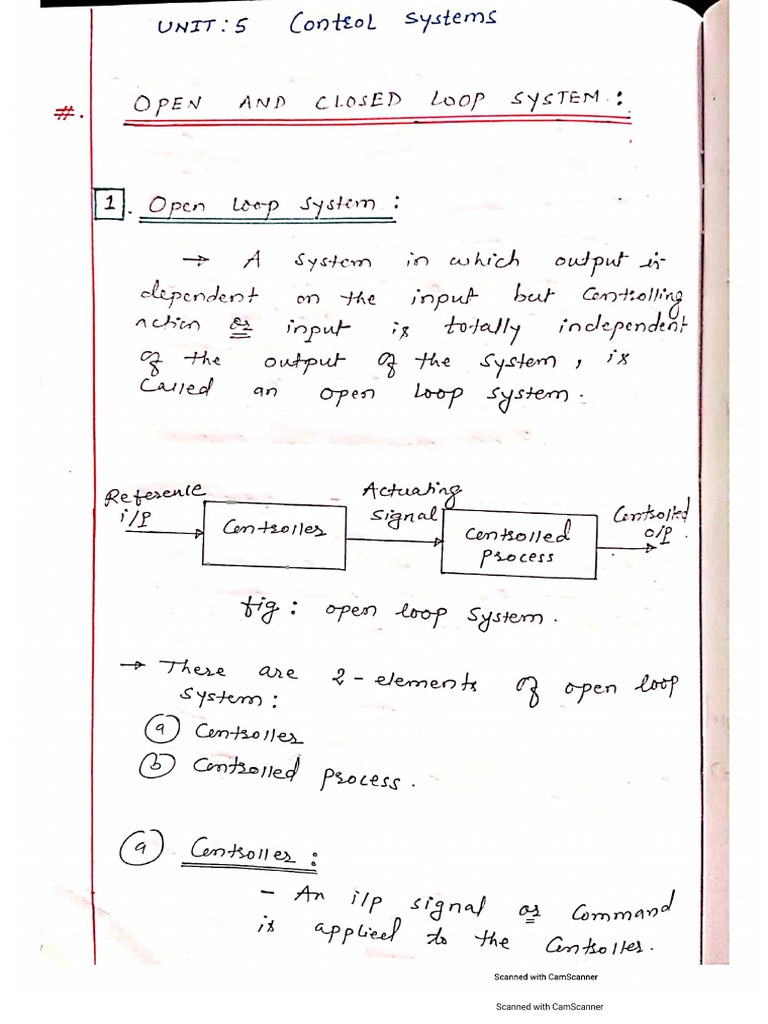 UNIT: 5 Control Systems
#. OPEN AND CLOSED LOOP SYSTEM:
1. Open loop system:
→ A system in which output is
dependent on the input but controlling
action or input is totally independent
of the output of the system, is
called an open loop system.
Reference
i/p
Controller
Actuating
Signal
Controlled
Process
Controlled
o/p.
fig: open loop system.
→ There are 2-elements of open loop
system:
(a) Controller
(b) Controlled process.
(a) Controller:
- An i/p signal or command
is applied to the controller.
Scanned with CamScanner
Scanned with CamScanner